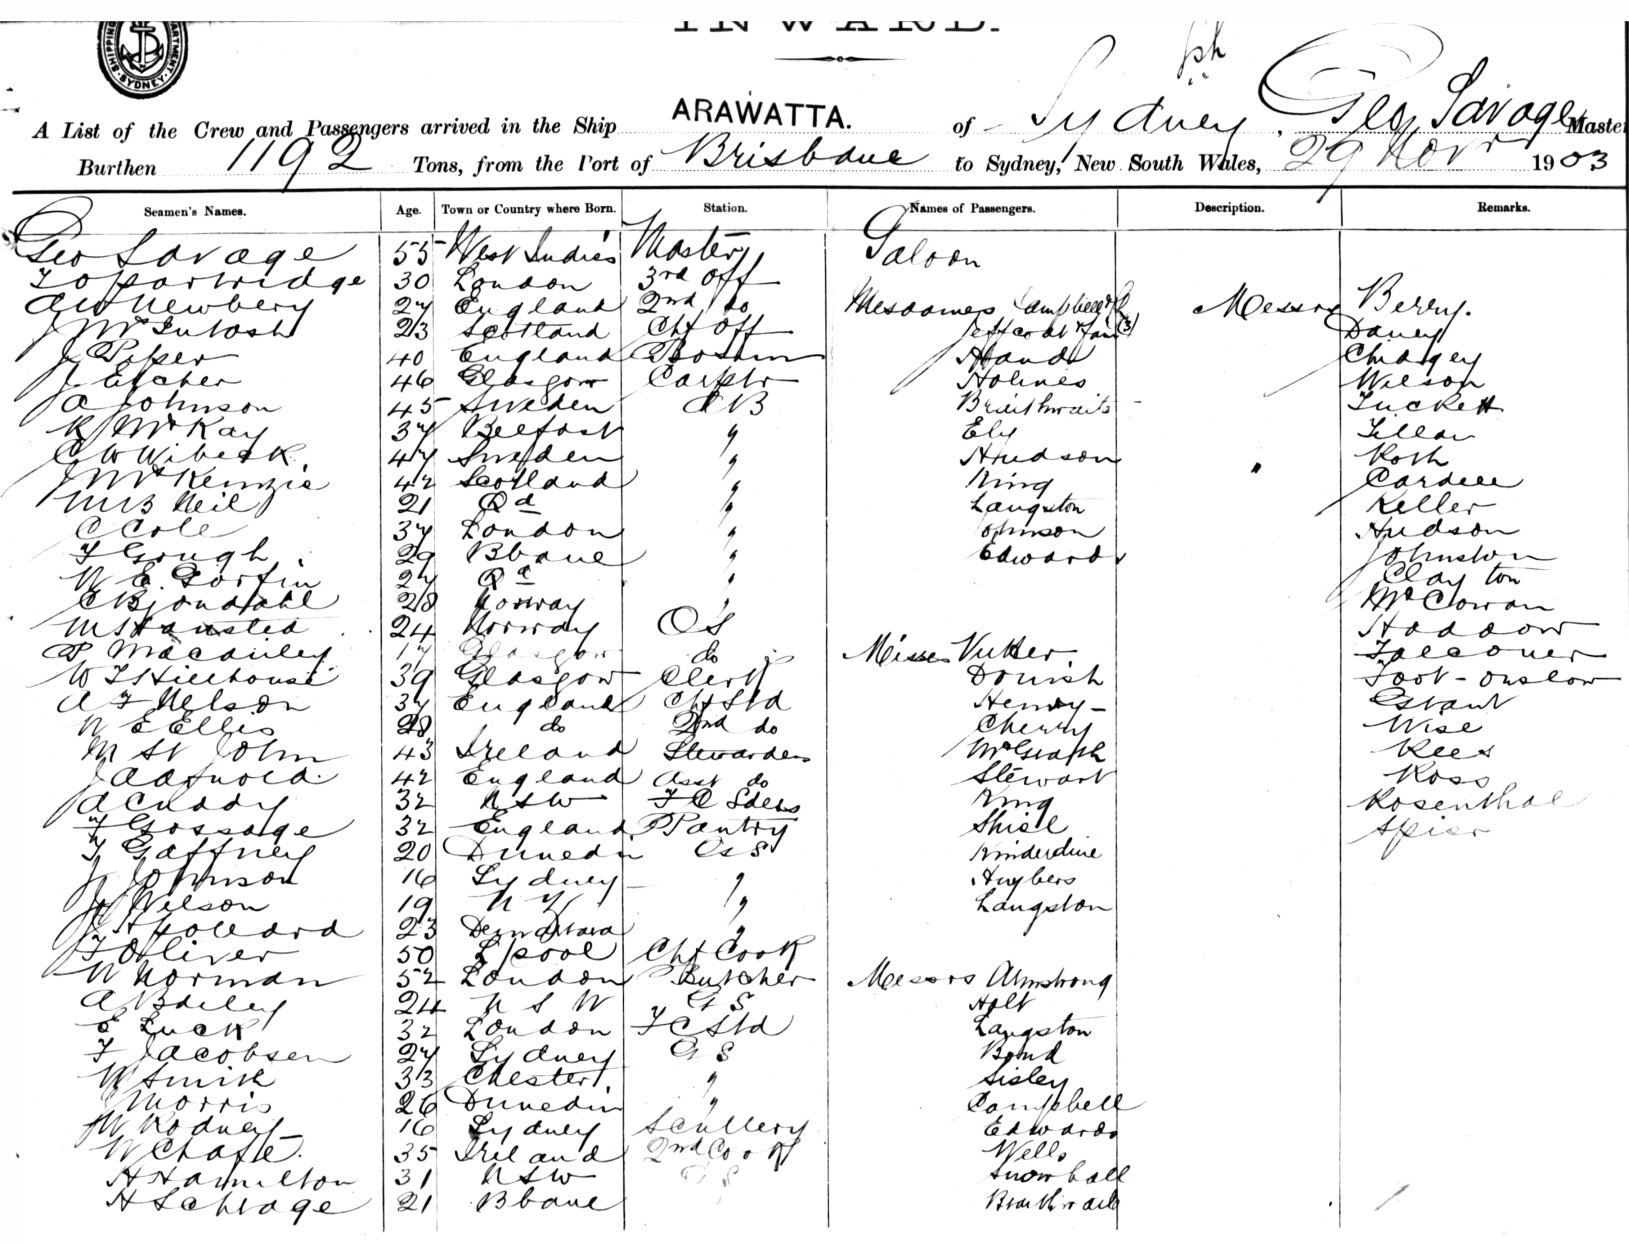 INWARD.
SHIPPING DEPARTMENT SYDNEY
ARAWATTA.
A List of the Crew and Passengers arrived in the Ship ARAWATTA. of Sydney, Geo Savage Master
Burthen 1192 Tons, from the Port of Brisbane to Sydney, New South Wales, 29 Novr 1903
Seamen's Names. Age. Town or Country where Born. Station. Names of Passengers. Description. Remarks.
Geo Savage 55 West Indies Master Saloon
Partridge 30 London 3rd Off
Newbery 27 England 2nd do Mesdames Campbell Messrs Berry.
J McIntosh 23 Scotland Chf Off Jeffcoat (3) Daney
J Piper 40 England Bosun Hand Chidgey
J Elcher 46 Glasgow Carptr Holmes Wilson
A Johnson 45 Sweden AB Braithwaite Tuckett
R McKay 37 Belfast " Ely
C W Wibeck 47 Sweden " Hudson Roth
J McKenzie 42 Scotland " King Cardell
Neil 21 Qd " Langston Keller
C Cole 37 London " Johnson Hudson
F Gough 29 Bbane " Edwards Johnston
W E Gorfin 27 Qd " Clayton
C Bjondahl 28 Norway " McCowan
24 Norway OS Haddow
P Macauley 17 Glasgow do Misses Falconer
W T Hillhouse 39 Glasgow Clerk Foot-Onslow
A F Nelson 37 England Chf Std Henry
W E Ellis 28 do 2nd do Cherry Wise
M St John 43 Ireland Stewardess McGrath Rees
J A Arnold 42 England Asst do Stewart Ross
A Cuddy 32 NSW King Rosenthal
F Gossage 32 England Pantry Shiel Spier
F Gaffney 20 Dunedin GS Kinderdine
J Johnson 16 Sydney " Huybers
J Wilson 19 N Z " Langston
Hollard 23 Demerara "
F Oliver 50 L'pool Chf Cook
W Norman 52 London Butcher Messrs Armstrong
A Bailey 24 N S W GS Holt
E Luck 32 London FC Std Langston
F Jacobsen 27 Sydney GS Bond
W Smith 33 Chester " Sisley
Morris 26 Dunedin " Campbell
W Rodney 16 Sydney Scullery Edwards
W Chafe 35 Ireland 2nd Cook Wells
H Hamilton 31 NSW GS Snowball
H Savage 21 Bbane Braithwaite